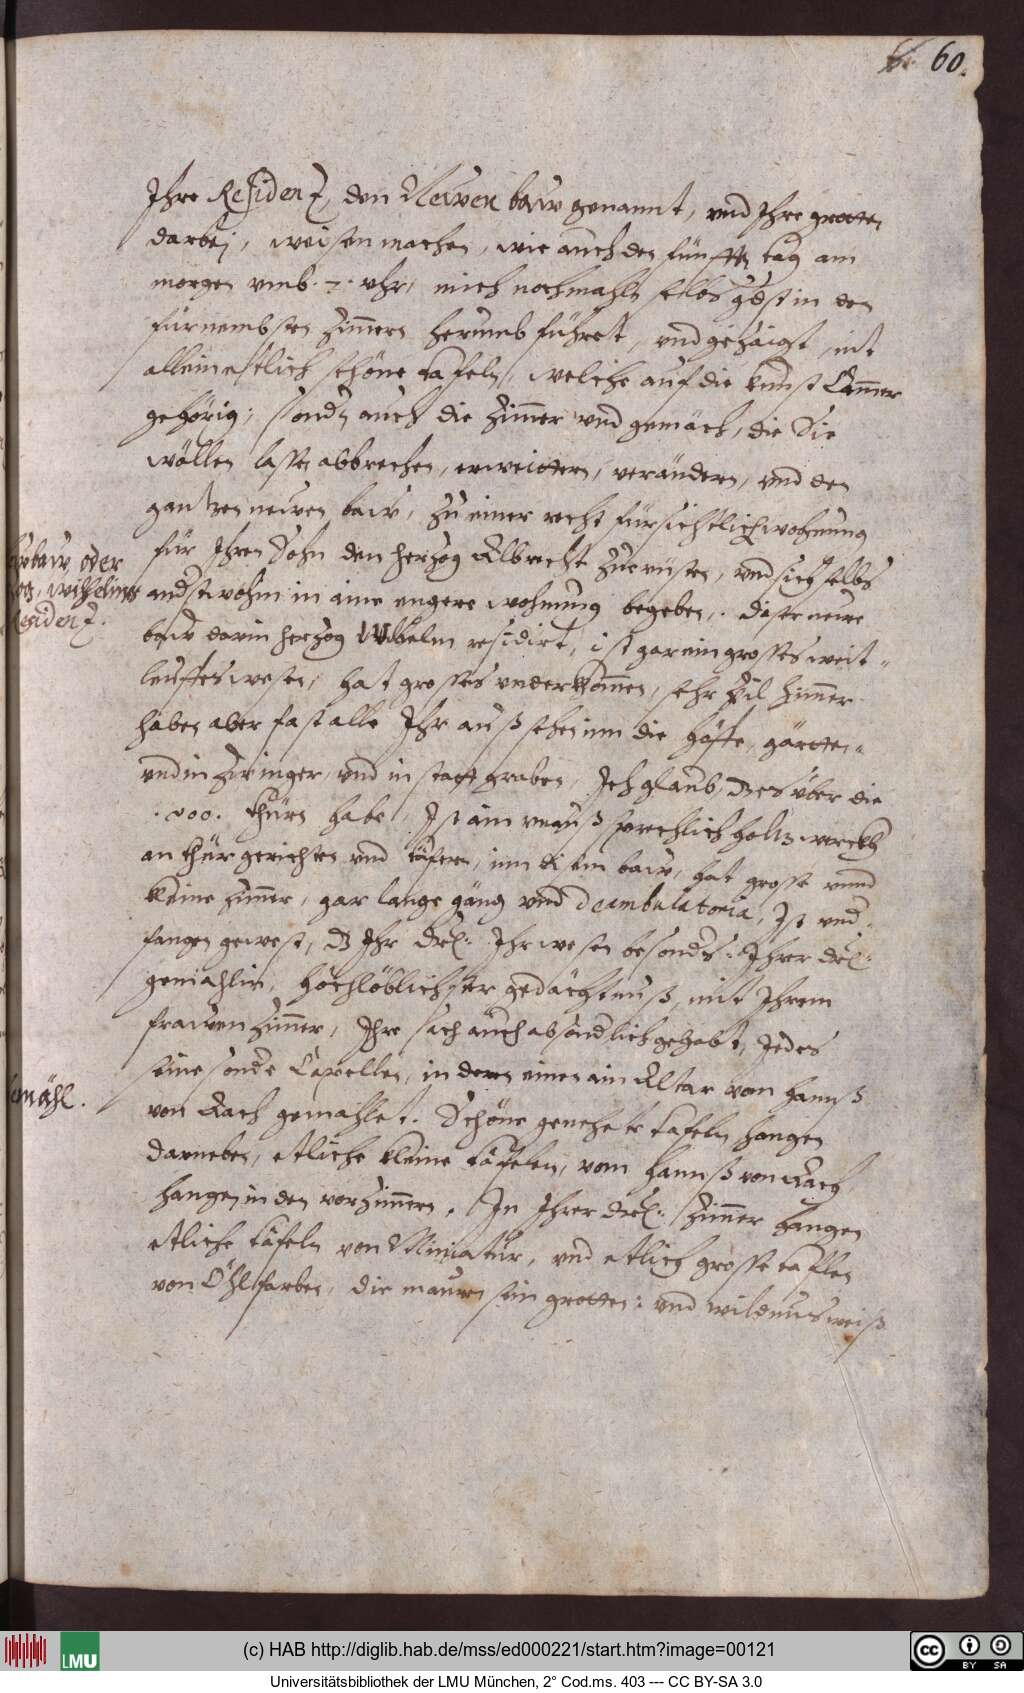 60.
Ihre Residentz, den Newen baw genannt, vnd Ihre grotten
darbej, weisen machen, wie auch den fünfften tag am
morgen vmb .7. vhr, mich nochmahln selbs gdst in den
fürnembsten Zimmern herumb führet, vnd gezaigt, nit
allein etlich schöne tafeln, welche auf die kunst Cammer
gehörig; sondern auch die Zimmer vnd gemäch, die Sie
wöllen lassen abbrechen, erweittern, verändern, vnd den
gantzen newen baw, zu einer recht fürsichtlich wohnung
für Ihren Sohn den herzog Albrecht zuerüsten, vnd sich selbs
anderstwohin in aine engere wohnung begeben. Diser newe
baw darin herzog Wilhelm residirt, ist gar ein grosses weit-
leuffes wesen, hat grosses vnderkommen, sehr vil Zimmer
haben aber fast alle Ihr außsehen inn die höffe, gärtten-
vnd in Zwinger, vnd in statt graben, Ich glaub, dz es über die
.000. thüren habe, Ist ain vnaußsprechlich holtzwerckh
an thürgerichten vnd täfern, inn disem baw, hat grosse vnnd
kleine Zimmer, gar lange gäng vnnd deambulatoria, Ist vmb-
fangen gewest, dz Ihr Drl: Ihr wesen besonders, Ihrer Drl:
gemahlin, hochlöblichster gedächtnuß, mit Ihrem
frawenzimmer, Ihre sach auch absonderlich gehabt, Jedes
seine sondere Capellen, in deren einer ain Altar vom Hannß
von Aach gemahlet. Schöne genehete tafeln hangen
darneben, etliche kleine täfelen, vom Hannß von Aach
hangen in den vorzimmern. In Ihrer Drl: Zimmer hangen
etliche täfeln von Miniatur, vnd etlich grosse taflen
von Öhlfarben, die mauren sein grotten: vnd wildnusweiß
baw oder
Wilhelms
Residentz.
mähl.
(c) HAB http://diglib.hab.de/mss/ed000221/start.htm?image=00121
LMU
CC BY SA
Universitätsbibliothek der LMU München, 2° Cod.ms. 403 --- CC BY-SA 3.0